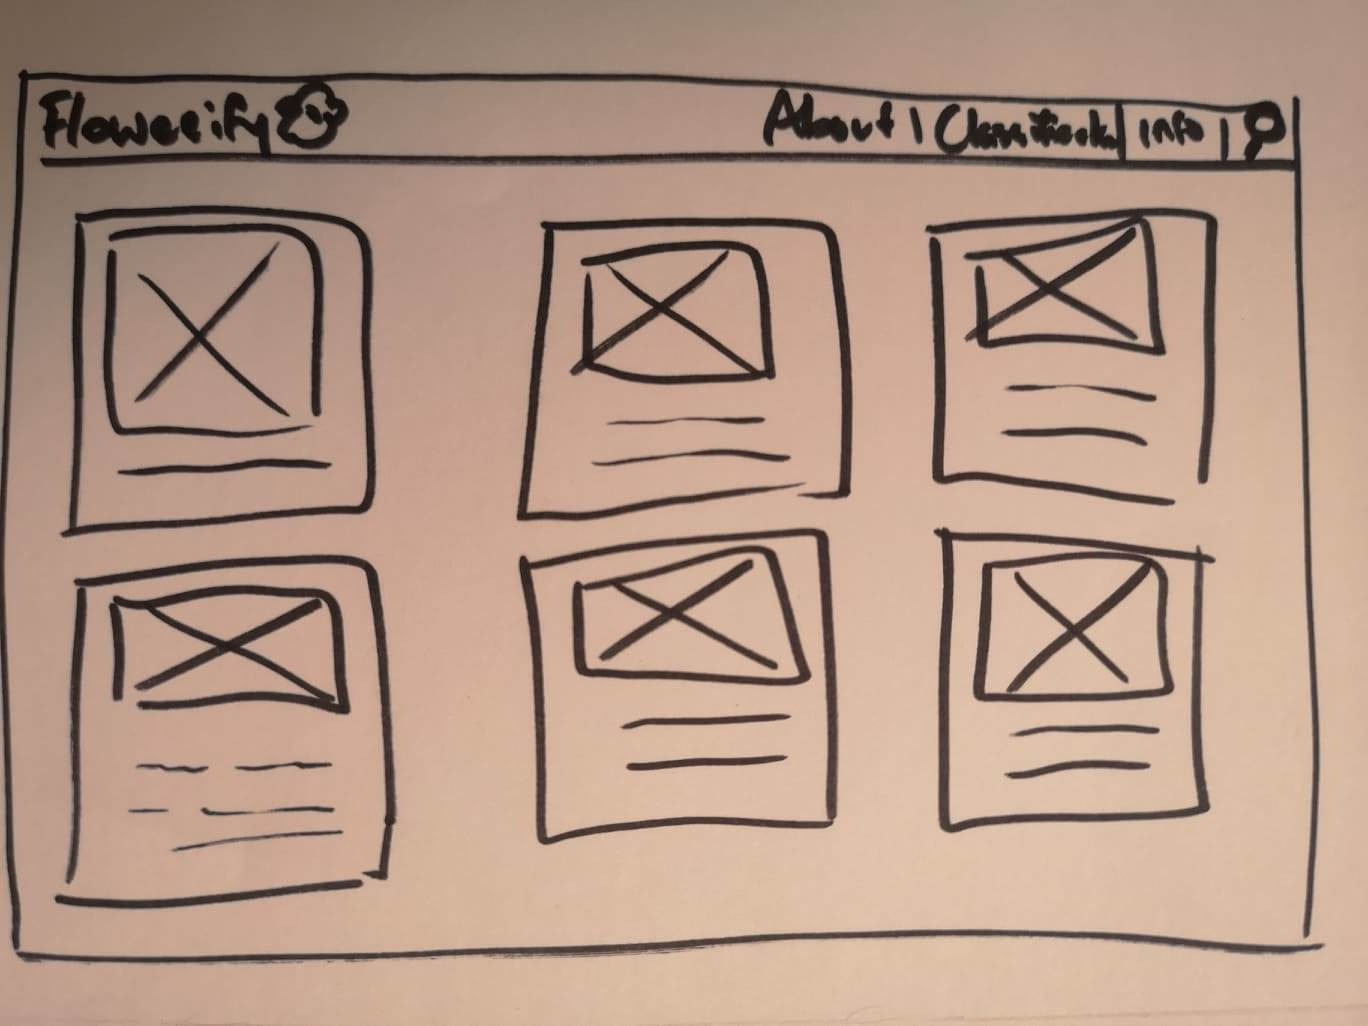 Flowerify
About | Classification | Info |